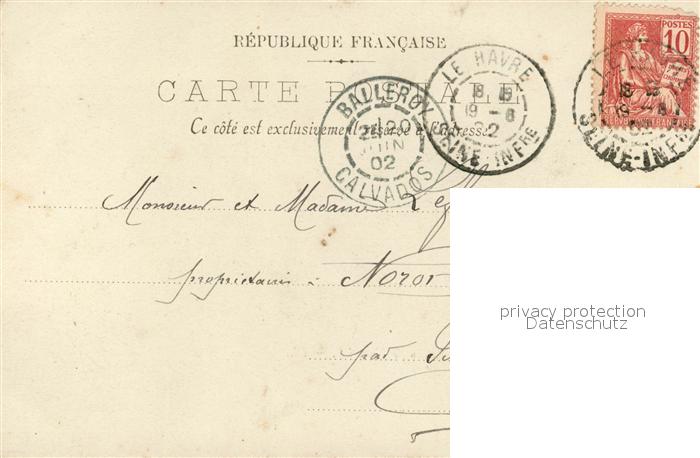 RÉPUBLIQUE FRANÇAISE
CARTE POSTALE
Ce côté est exclusivement réservé à l'adresse
LE HAVRE
19 -6
02
SEINE-INFRE
BALLEROY
JUIN
02
CALVADOS
POSTES
10
RÉPUBLIQUE FRANÇAISE
SEINE-INF
Monsieur et Madame
propriétaire
par
privacy protection
Datenschutz